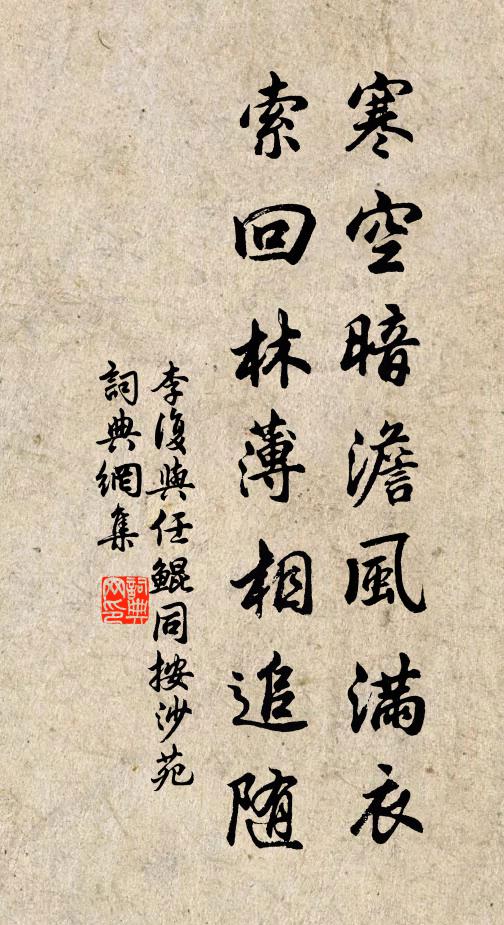 寒空暗澹風滿衣
索回林薄相追隨
李復與任鯤同按沙苑
詞典網集
詞典網印